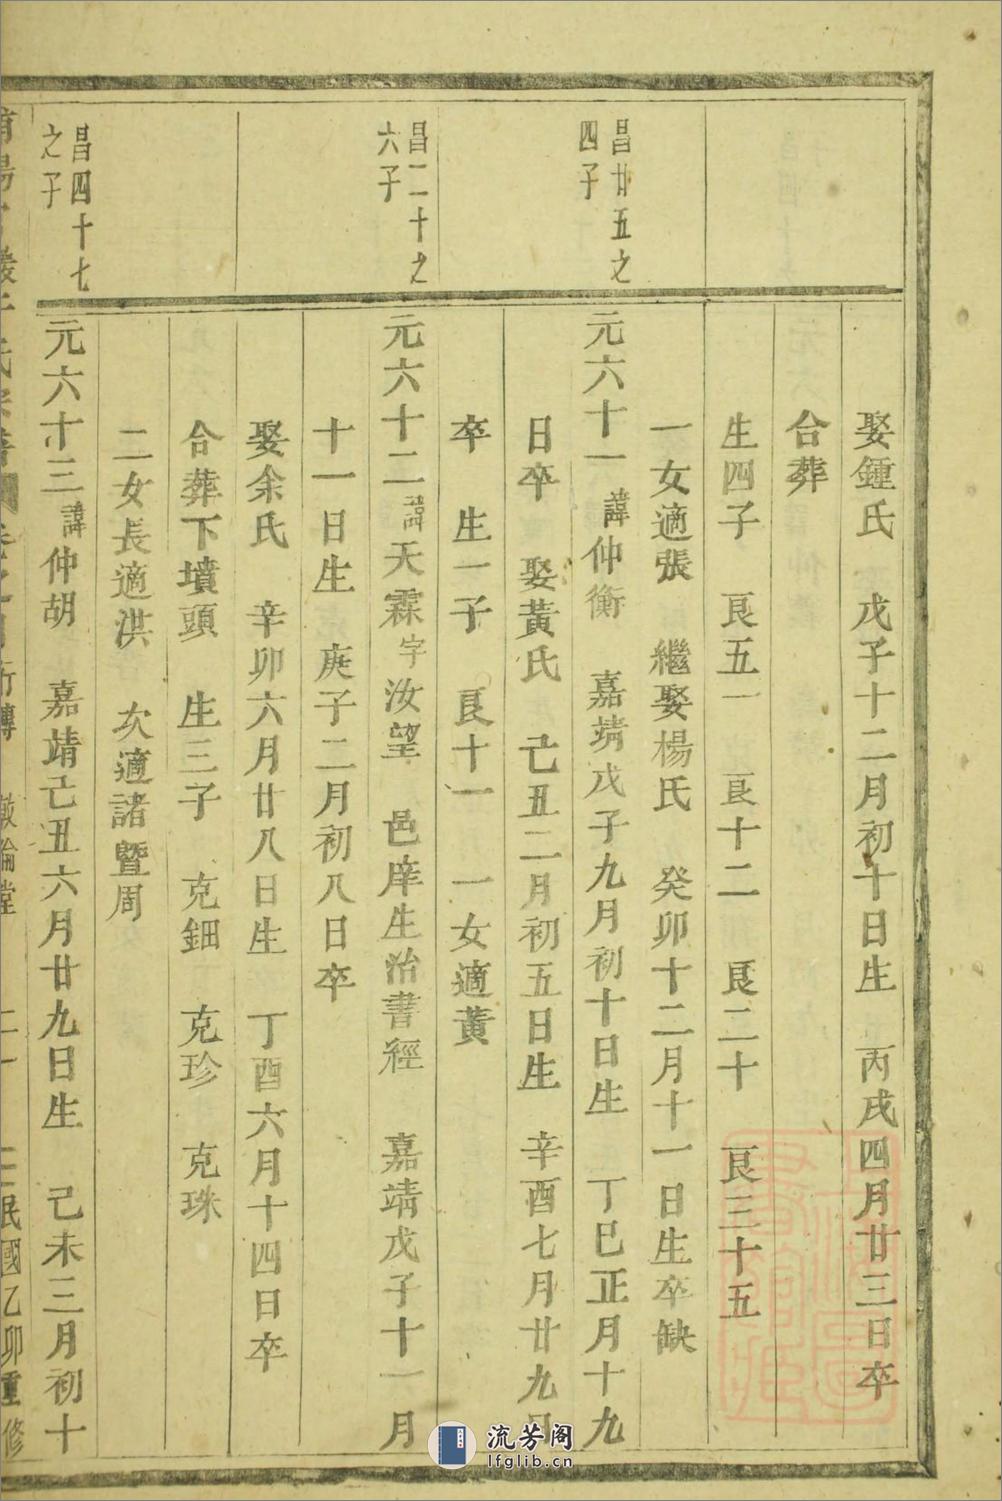 娶鍾氏 戊子十二月初十日生 丙戌四月廿三日卒
合葬
生四子 良五一 良十二 良二十 良三十五
一女適張 繼娶楊氏 癸卯十二月十一日生卒缺
昌廿五之
四子
元六十一 諱仲衡 嘉靖戊子九月初十日生 丁巳正月十九
日卒 娶黃氏 己丑二月初五日生 辛酉七月廿九日
卒 生一子 良十一 一女適黃
昌二十之
六子
元六十二 諱天霖 字汝望 邑庠生治書經 嘉靖戊子十一月
十一日生 庚子二月初八日卒
娶余氏 辛卯六月廿八日生 丁酉六月十四日卒
合葬下墳頭 生三子 克鈿 克珍 克珠
二女長適洪 次適諸暨周
昌四十七
之子
元六十三 諱仲胡 嘉靖己丑六月廿九日生 己未三月初十
民國乙卯重修
流芳阁
lfglib.cn